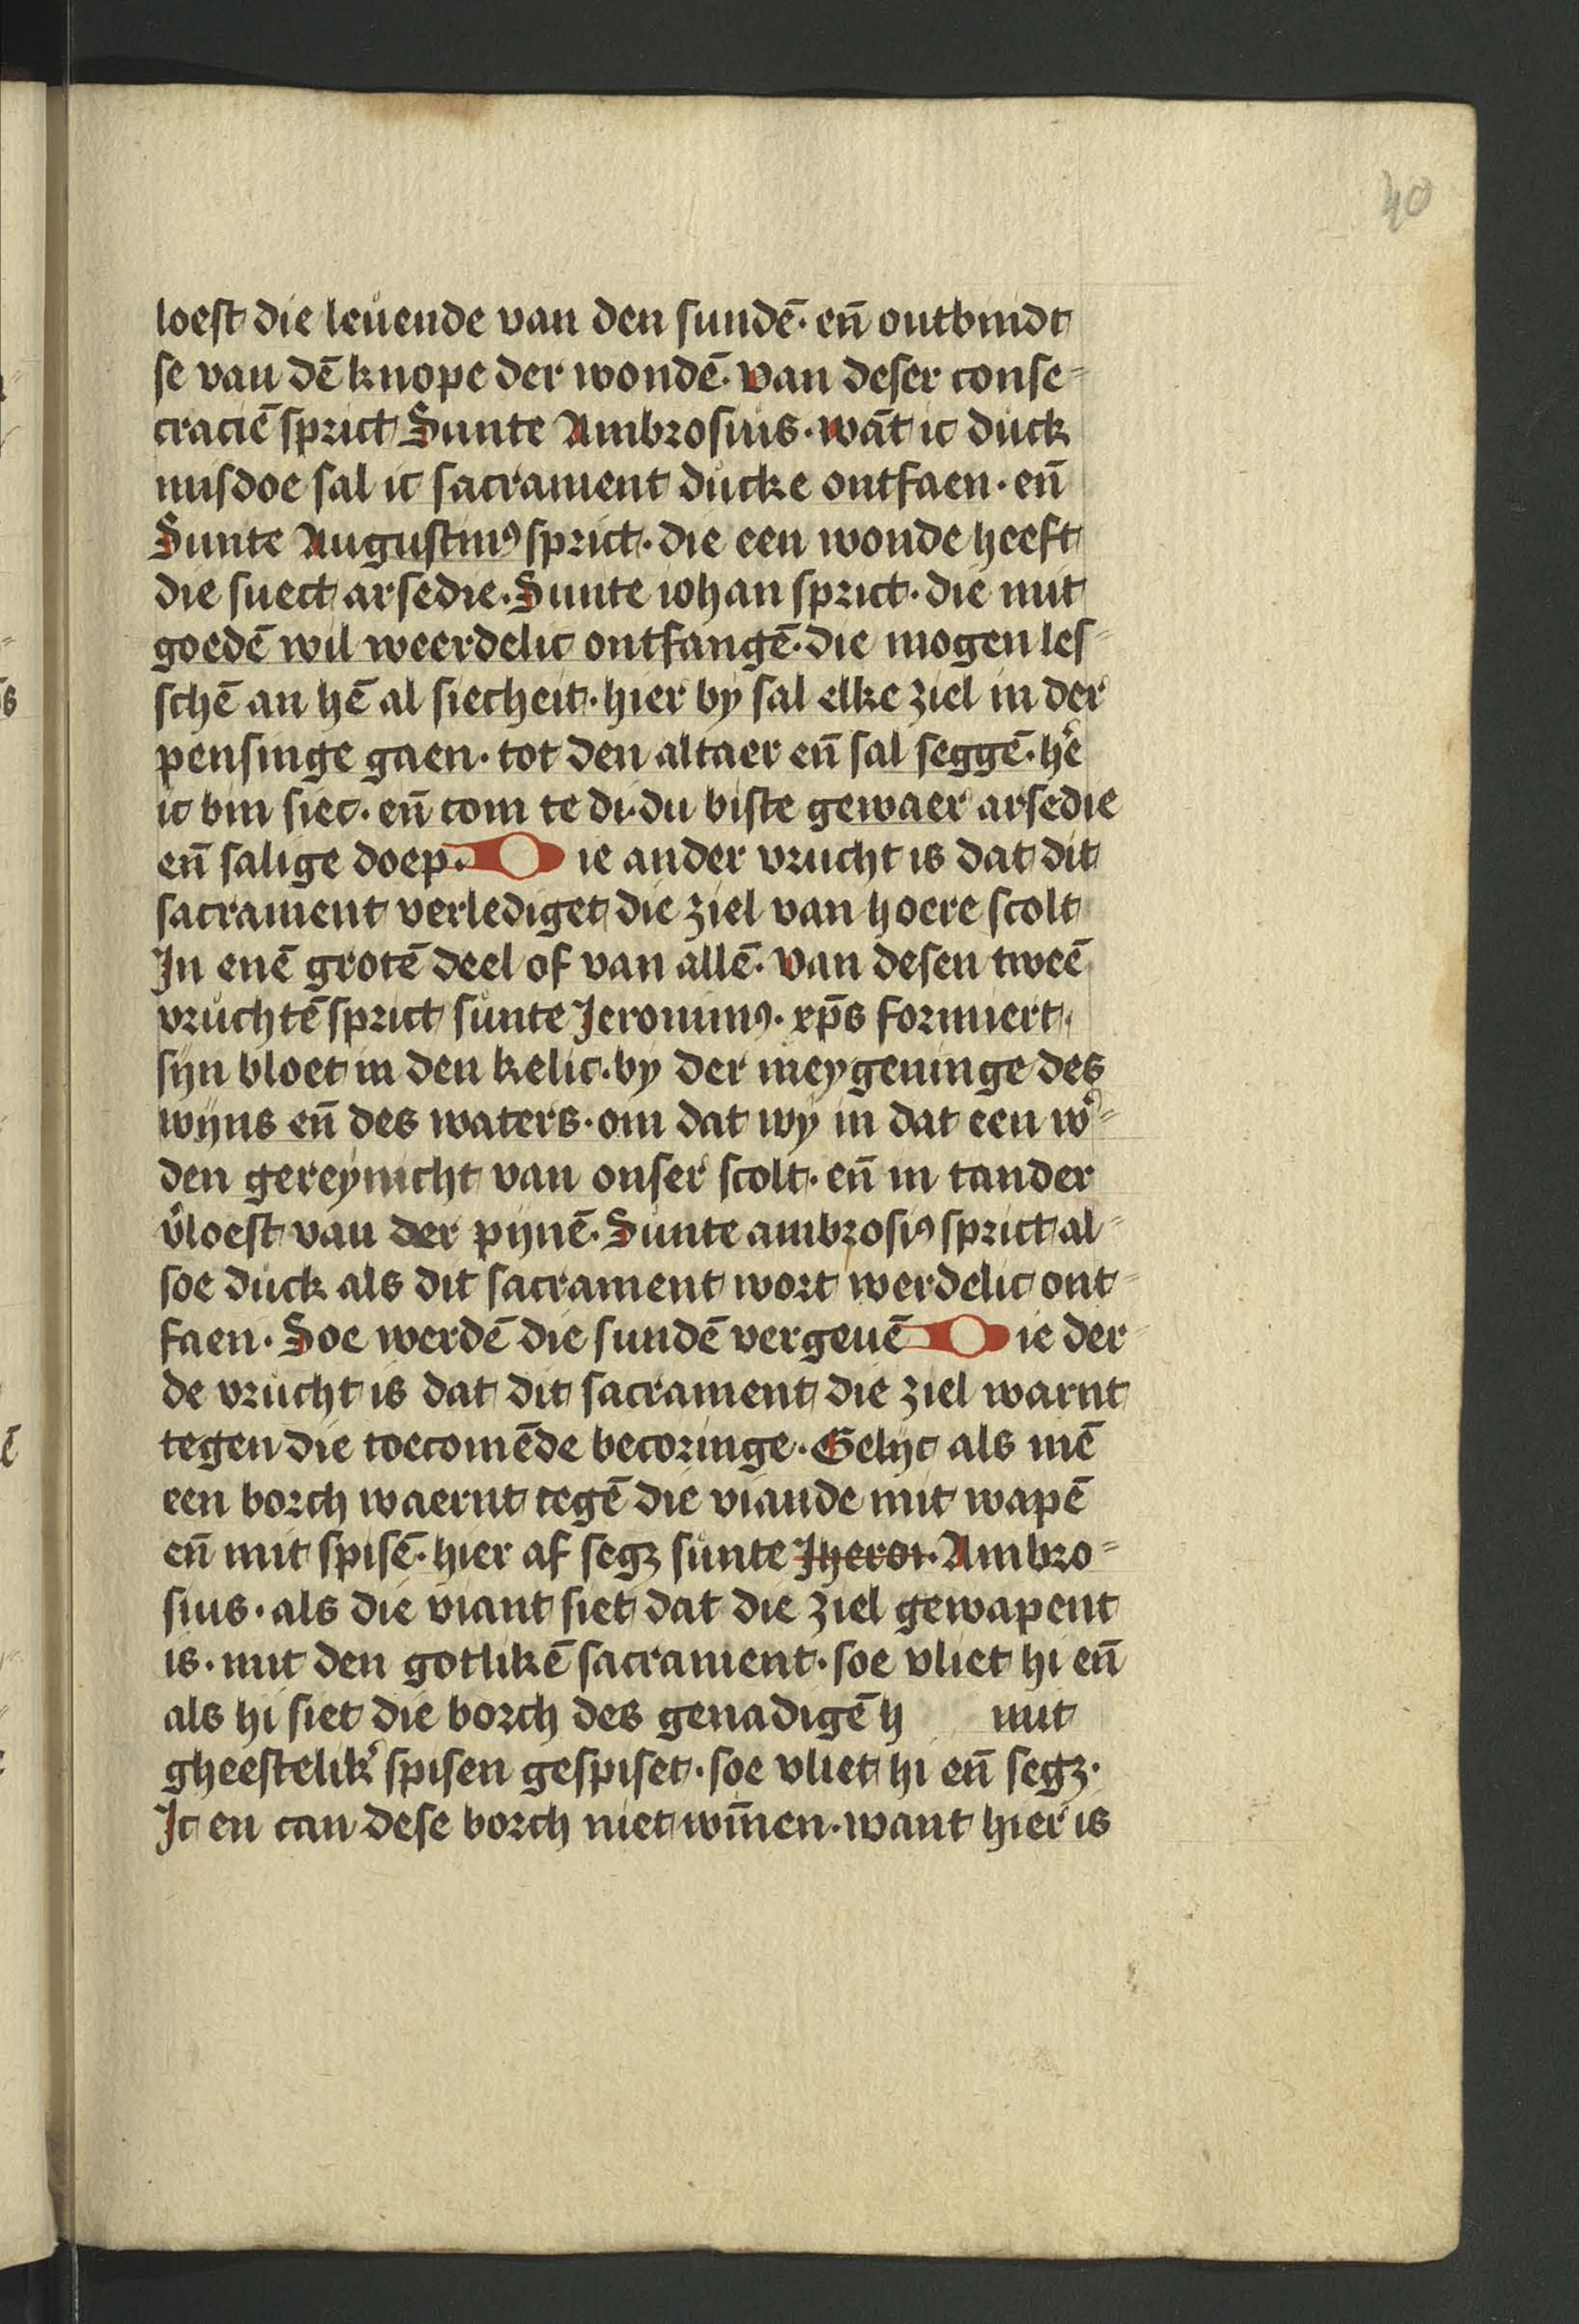 40
loest die leuende van den sundē· en̄ ontbindt
se van dē knope der wondē· van deser conse=
craciē sprict Sunte Ambrosius· wāt ic duck
misdoe sal ic sacrament ducke ontfaen· en̄
Sunte Augustinꝰ sprict· die een wonde heeft
die suect arsedie· Sunte iohan sprict· die mit
goedē wil weerdelic ontfangē· die mogen les=
schē an hē al siecheit· hier by sal elke ziel in der
pensinge gaen· tot den altaer en̄ sal seggē· hē
ic bin siec· en̄ com te di· du biste gewaer arsedie
en̄ salige doep· Die ander vrucht is dat dit
sacrament verlediget die ziel van hoere scolt
In enē grotē deel of van allē· van desen tweē
vruchtē sprict sunte Jeronimꝰ· xp̄s formiert
syn bloet in den kelic· by der meygeninge des
wyns en̄ des waters· om dat wy in dat een wͦ=
den gereynicht van onser scolt· en̄ in tander
v̾loest van der pynē· Sunte ambrosiꝰ sprict al=
soe duck als dit sacrament wort werdelic ont=
faen· Soe werdē die sundē vergeuē Die der=
de vrucht is dat dit sacrament die ziel warnt
tegen die toecomēde becoringe· Gelyc als mē
een borch waernt tegē die viande mit wapē
en̄ mit spisē· hier af segꝫ sunte Jheroī· Ambro=
sius· als die viant siet dat die ziel gewapent
is· mit den gotlikē sacrament· soe vliet hi en̄
als hi siet die borch des genadigē h mit
gheestelik̾ spisen gespiset· soe vliet hi en̄ segꝫ·
Ic en can dese borch niet wīnen· want hier is